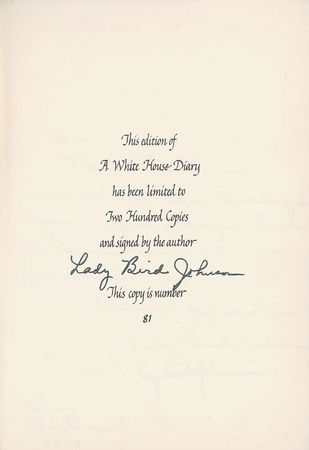 This edition of
A White House Diary
has been limited to
Two Hundred Copies
and signed by the author
Lady Bird Johnson
This copy is number
81